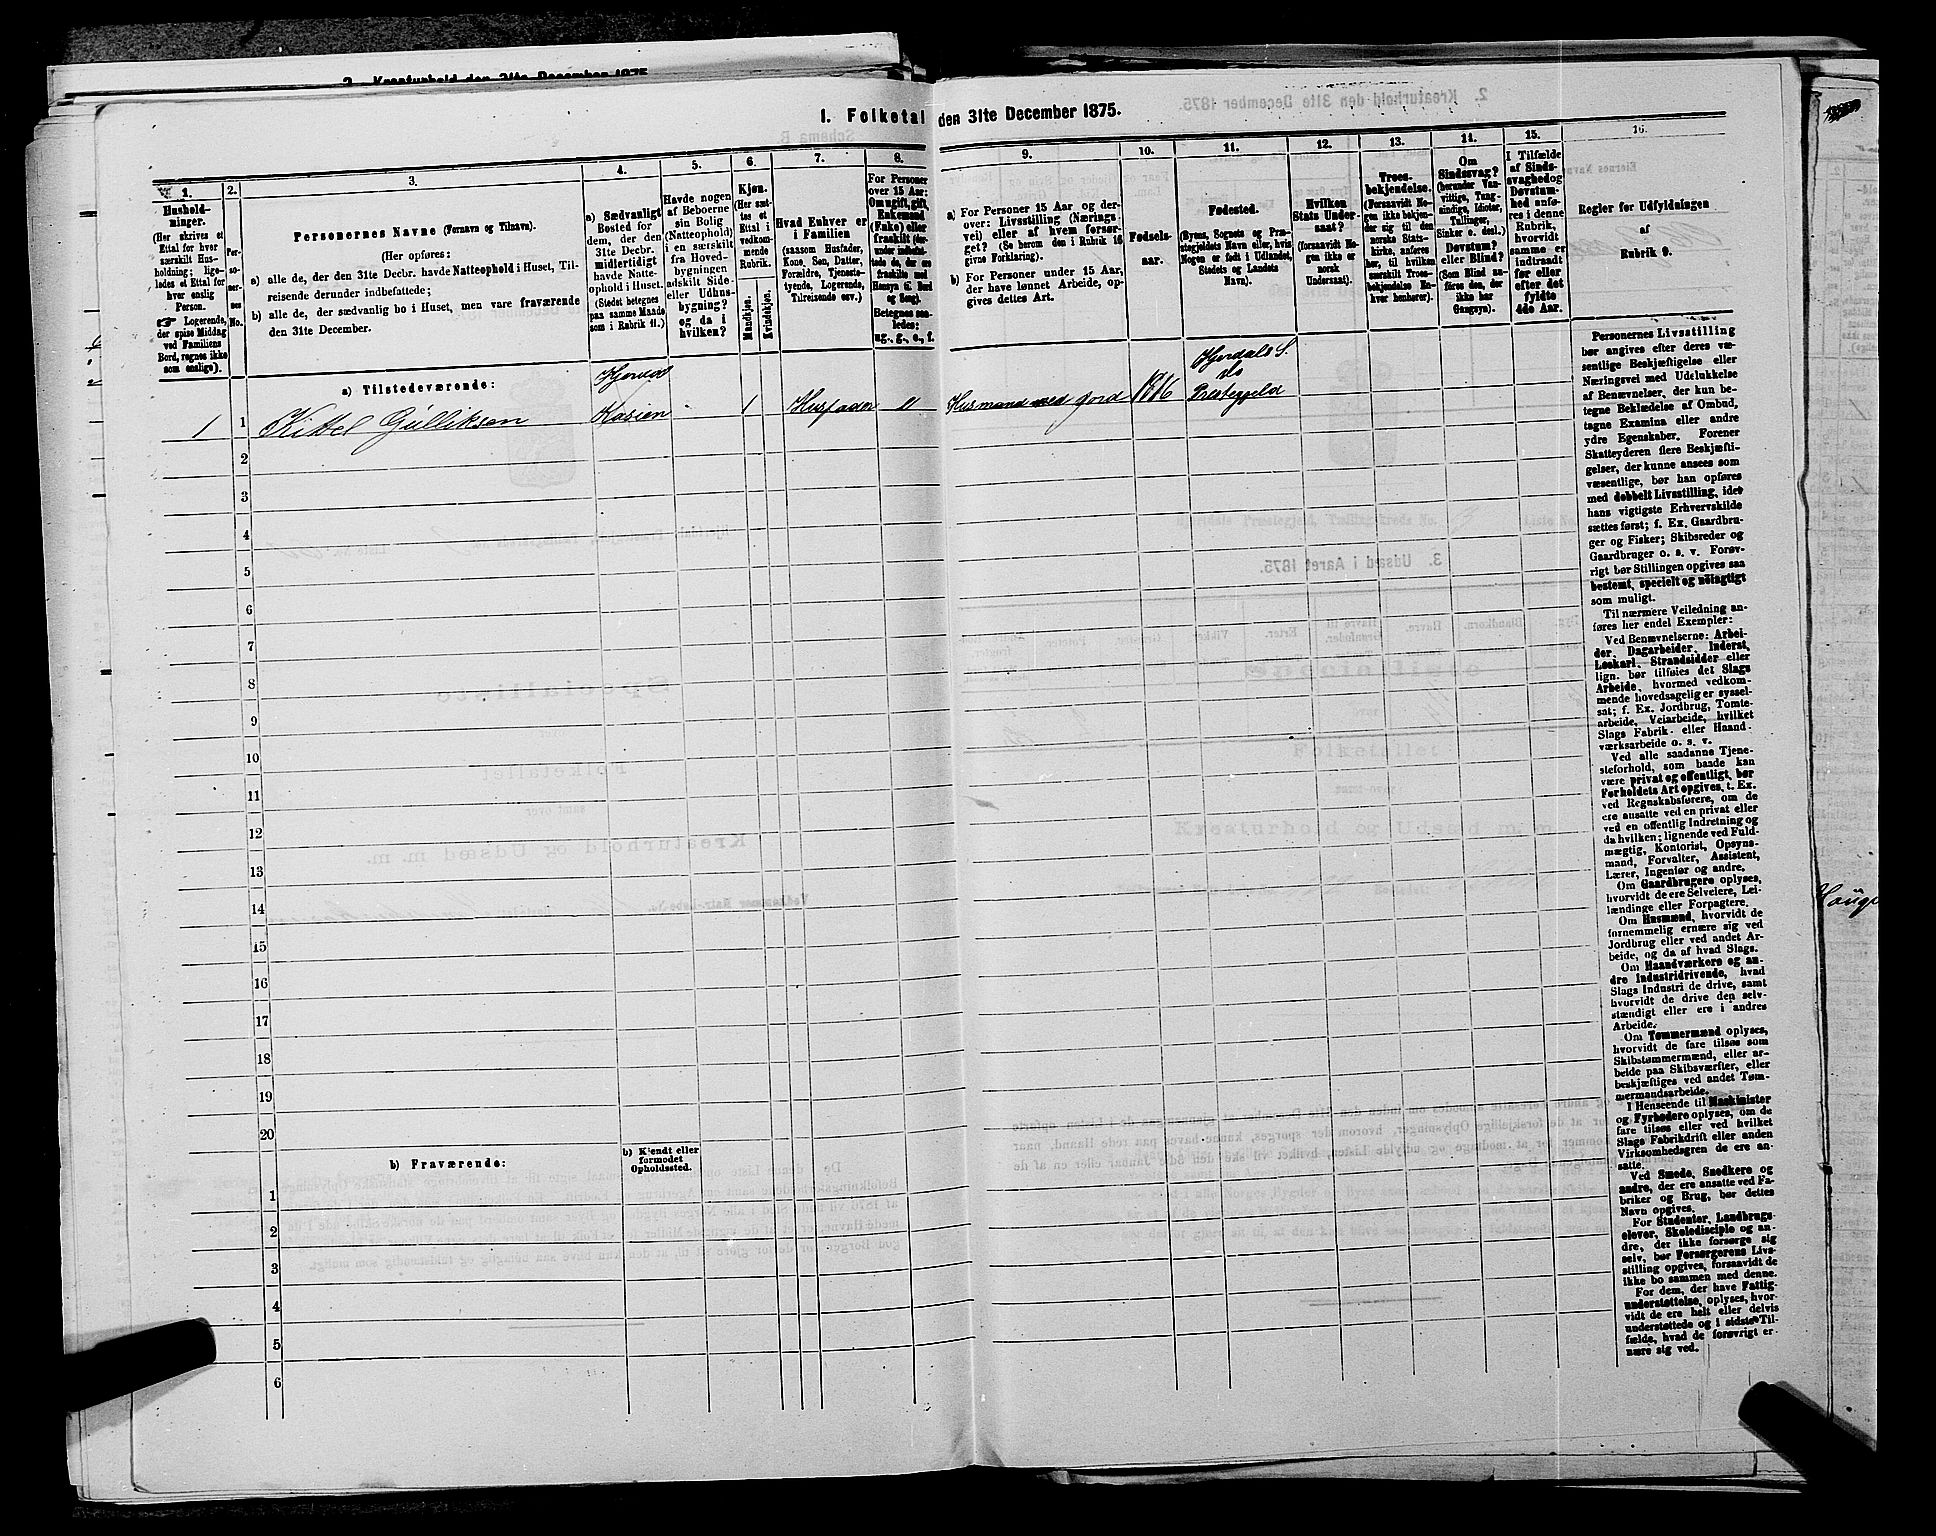 2. Kreaturhold den 31te December 1875.
1. Folketal den 31te December 1875.
1.
Hushold-
ninger.
(Her skrives et
Ettal for hver
særskilt Hus-
holdning; lige-
ledes et Ettal for
hver enslig
Person.
☞ Logerende,
der spise Middag
ved Familiens
Bord, regnes ikke
som enslige).
2.
Per-
so-
ner-
nes
No.
3.
Personernes Navne (Fornavn og Tilnavn).
(Her opføres:
a) alle de, der den 31te Decbr. havde Natteophold i Huset, Til-
reisende derunder indbefattede;
b) alle de, der sædvanlig bo i Huset, men vare fraværende
den 31te December.
4.
a) Sædvanligt
Bosted for
dem, der den
31te Decbr.
midlertidigt
havde Natte-
ophold i Huset.
(Stedet betegnes
paa samme Maade
som i Rubrik 11.)
5.
Havde nogen
af Beboerne
sin Bolig
(Natteophold)
i en særskilt
fra Hoved-
bygningen
adskilt Side-
eller Udhus-
bygning?
og da i
hvilken?
6.
Kjøn.
(Her sæt-
tes et
Ettal i
vedkom-
mende
Rubrik.
Mandkjøn.
Kvindekjøn.
7.
Hvad Enhver er
i Familien
(saasom Husfader,
Kone, Søn, Datter,
Forældre, Tjeneste-
tyende, Logerende,
Tilreisende osv.)
8.
For Personer
over 15 Aar:
Om ugift, gift,
Enkemand
(Enke) eller
fraskilt
Betegnes saa-
ledes:
ug., g., e., f.
9.
a) For Personer 15 Aar og der-
over: Livsstilling (Nærings-
vei) eller af hvem forsør-
get? (Se herom den i Rubrik 16
givne Forklaring).
b) For Personer under 15 Aar,
der have lønnet Arbeide, op-
gives dettes Art.
10.
Fødsels-
aar.
11.
Fødested.
(Byens, Sognets og Præ-
stegjeldets Navn eller, hvis
Nogen er født i Udlandet,
Stedets og Landets
Navn).
12.
Hvilken
Stats Under-
saat?
(forsaavidt No-
gen ikke er
norsk
Undersaat).
13.
Troes-
bekjendelse.
(Forsaavidt No-
gen ikke bekjen-
der sig til den
norske Stats-
kirke, anføres
her, til hvilken
særskilt Troes-
bekjendelse En-
hver henhører).
14.
Om
Sindssvag?
(herunder Van-
vittige, Tung-
sindige, Idioter,
Tullinger,
Sinker o. desl.)
Døvstum?
eller Blind?
(Som Blind an-
føres den, der
ikke har
Gangsyn).
15.
I Tilfælde
af Sinds-
svaghed og
Døvstum-
hed anfø-
res i denne
Rubrik,
hvorvidt
samme er
indtraadt
før eller
efter det
fyldte
4de Aar.
16.
Regler for Udfyldningen
af
Rubrik 9.
a) Tilstedeværende:
1 1 Kittel Gulliksen Kasien 1 Husfader Husmand med Jord 1816 Hjerdals S. do Præstegjeld
2
3
4
5
6
7
8
9
10
11
12
13
14
15
16
17
18
19
20
b) Fraværende:
b) Kjendt eller
formodet
Opholdssted.
1
2
3
4
5
6
Personernes Livsstilling
bør angives efter deres væ-
sentlige Beskjæftigelse eller
Næringsvei med Udelukkelse
af Benævnelser, der kun be-
tegne Beklædelse af Ombud,
tagne Examina eller andre
ydre Egenskaber. Forener
Skatteyderen flere Beskjæfti-
gelser, der kunne ansees som
væsentlige, bør han opføres
med dobbelt Livsstilling, idet
hans vigtigste Erhvervskilde
sættes først; f. Ex. Gaardbru-
ger og Fisker; Skibsreder og
Gaardbruger o. s. v. Forøv-
rigt bør Stillingen opgives saa
bestemt, specielt og nøiagtigt
som muligt.
Til nærmere Veiledning an-
føres her endel Exempler:
Ved Benævnelserne: Arbei-
der, Dagarbeider, Inderst,
Løskarl, Strandsidder eller
lign. bør tilføies det Slags
Arbeide, hvormed vedkom-
mende hovedsagelig er syssel-
sat; f. Ex. Jordbrug, Tomte-
arbeide, Veiarbeide, hvilket
Slags Fabrik- eller Haand-
værksarbeide o. s. v.
Ved alle saadanne Tjene-
steforhold, som baade kan
være privat og offentligt, bør
Forholdets Art opgives, t. Ex.
ved Regnskabsførere, om de
ere ansatte ved en privat eller
ved en offentlig Indretning og
da hvilken; lignende ved Fuld-
mægtig, Kontorist, Opsyns-
mand, Forvalter, Assistent,
Lærer, Ingeniør og andre.
Om Gaardbrugere oplyses,
hvorvidt de ere Selveiere, Lei-
lændinge eller Forpagtere.
Om Husmænd, hvorvidt de
fornemmelig ernære sig ved
Jordbrug eller ved andet Ar-
beide, og da af hvad Slags.
Om Haandværkere og an-
dre Industridrivende, hvad
Slags Industri de drive, samt
hvorvidt de drive den selv-
stændigt eller ere i andres
Arbeide.
Om Tømmermænd oplyses,
hvorvidt de fare tilsøs som
Skibstømmermænd, eller ar-
beide paa Skibsværfter, eller
beskjæftiges ved andet Tøm-
mermandsarbeide.
I Henseende til Maskinister
og Fyrbødere oplyses, om de
fare tilsøs eller ved hvilket
Slags Fabrikdrift eller anden
Virksomhedsgren de ere an-
satte.
Ved Smede, Snedkere og
andre, der ere ansatte ved Fa-
briker og Brug, bør dettes
Navn opgives.
For Studenter, Landbrugs-
elever, Skoledisciple og an-
dre, der ikke forsørge sig
selv, bør Forsørgerens Livs-
stilling opgives, forsaavidt de
ikke bo sammen med denne.
For dem, der have Fattig-
understøttelse, oplyses, hvor-
vidt de ere helt eller delvis
understøttede og i sidste Til-
fælde, hvad de forøvrigt er-
nære sig ved.